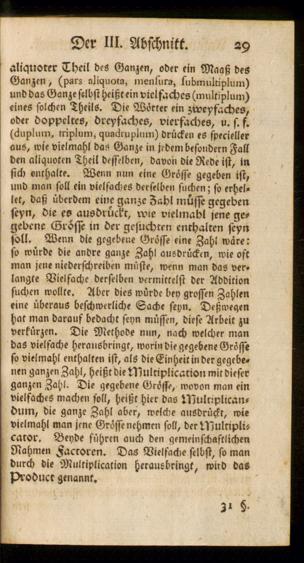 Der III. Abschnitt. 29
aliquoter Theil des Ganzen, oder ein Maaß des
Ganzen, (pars aliquota, mensura, submultiplum)
und das Ganze selbst heißt ein vielfaches (multiplum)
eines solchen Theils. Die Wörter ein zweyfaches,
oder doppeltes, dreyfaches, vierfaches, u. s. f.
(duplum, triplum, quadruplum) drücken es specieller
aus, wie vielmahl das Ganze in jedem besondern Fall
den aliquoten Theil desselben, davon die Rede ist, in
sich enthalte. Wenn nun eine Grösse gegeben ist,
und man soll ein vielfaches derselben suchen; so erhel-
let, daß überdem eine ganze Zahl müsse gegeben
seyn, die es ausdrückt, wie vielmahl jene ge-
gebene Grösse in der gesuchten enthalten seyn
soll. Wenn die gegebene Grösse eine Zahl wäre:
so würde die andre ganze Zahl ausdrücken, wie oft
man jene niederschreiben müste, wenn man das ver-
langte Vielfache derselben vermittelst der Addition
suchen wollte. Aber dies würde bey grossen Zahlen
eine überaus beschwerliche Sache seyn. Deßwegen
hat man darauf bedacht seyn müssen, diese Arbeit zu
verkürzen. Die Methode nun, nach welcher man
das vielfache herausbringt, worin die gegebene Grösse
so vielmahl enthalten ist, als die Einheit in der gegebe-
nen ganzen Zahl, heißt die Multiplication mit dieser
ganzen Zahl. Die gegebene Grösse, wovon man ein
vielfaches machen soll, heißt hier das Multiplican-
dum, die ganze Zahl aber, welche ausdrückt, wie
vielmahl man jene Grösse nehmen soll, der Multipli-
cator. Beyde führen auch den gemeinschaftlichen
Nahmen Factoren. Das Vielfache selbst, so man
durch die Multiplication herausbringt, wird das
Product genannt.
31 §.